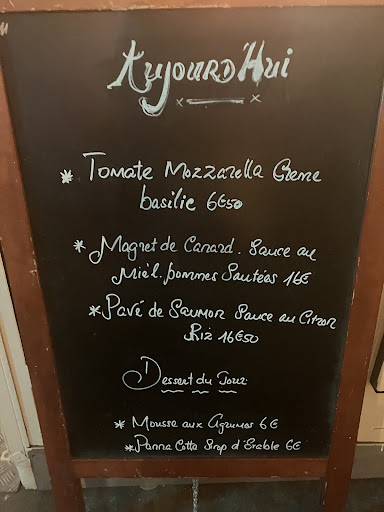 Aujourd'Hui
* Tomate Mozzarella Creme
basilic 6€50
* Magret de Canard. Sauce au
Miel. pommes Sautées 16€
* Pavé de Saumon Sauce au Citron
Riz 16€50
Dessert du Jour
* Mousse aux Agrumes 6€
* Panna Cotta Sirop d'Erable 6€